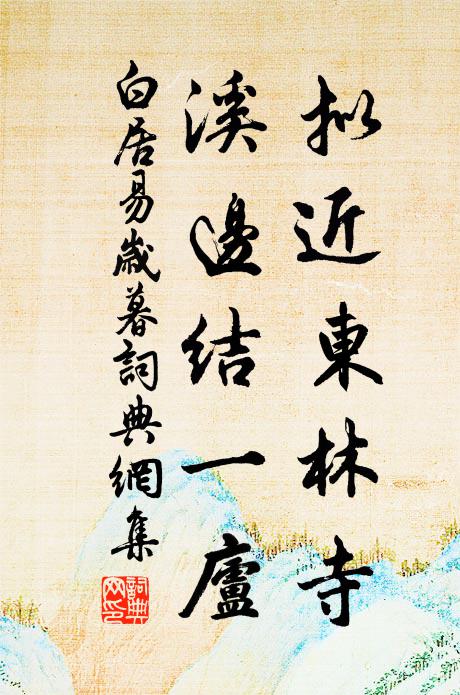 拟近東林寺
溪邊結一廬
白居易歲暮詞典網集
詞典
网印